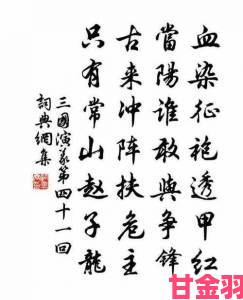 血染征袍透甲红
當陽谁敢與争锋
古来冲阵扶危主
只有常山赵子龍
三國演義第四十一回
詞典網集
甘金羽